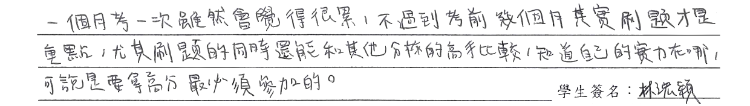 一個月考一次雖然會覺得很累，不過到考前幾個月其實刷題才是
重點，尤其刷題的同時還能和其他分校的高手比較，知道自己的實力在哪，
可說是要拿高分最必須參加的。
學生簽名：林